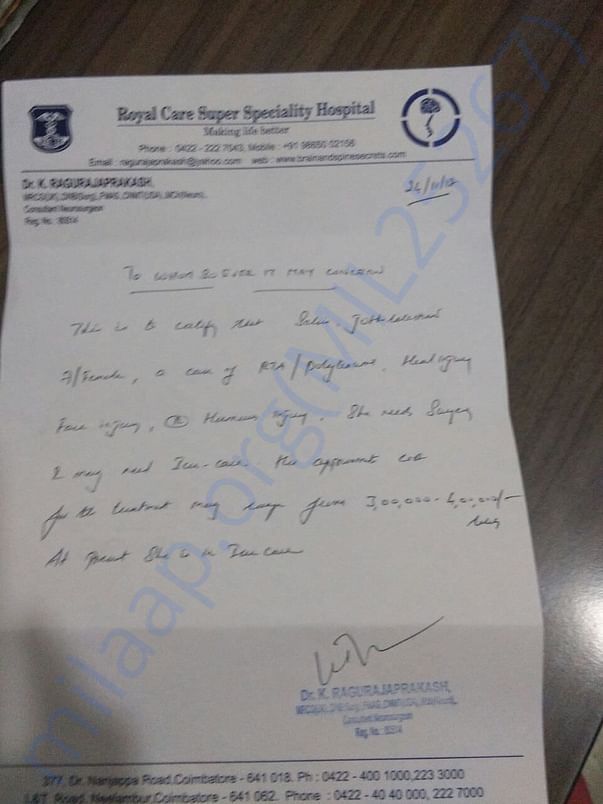 Royal Care Super Speciality Hospital
Making life better
Phone : 0422 - 222 7043, Mobile : +91 98650 02156
Email : ragurajaprakash@yahoo.com web : www.brainandspinesecrets.com
Dr. K. RAGURAJAPRAKASH,
Consultant Neurosurgeon
Reg. No. : 80314
24/11/17
To whom so ever it may concern
This is to certify that
7/Female, a case of RTA/Polytrauma, Head injury
Face injury, (R) Humerus injury. She needs Surgery
& may need Icu-care. The approximate cost
for the treatment may range from 3,00,000 - 4,00,000/-
At present She is in Icu care
Dr. K. RAGURAJAPRAKASH,
Consultant Neurosurgeon
Reg. No. : 80314
377, Dr. Nanjappa Road, Coimbatore - 641 018. Ph : 0422 - 400 1000, 223 3000
L&T Road, Neelambur, Coimbatore - 641 062. Phone : 0422 - 40 40 000, 222 7000
milaap.org(MIL25267)